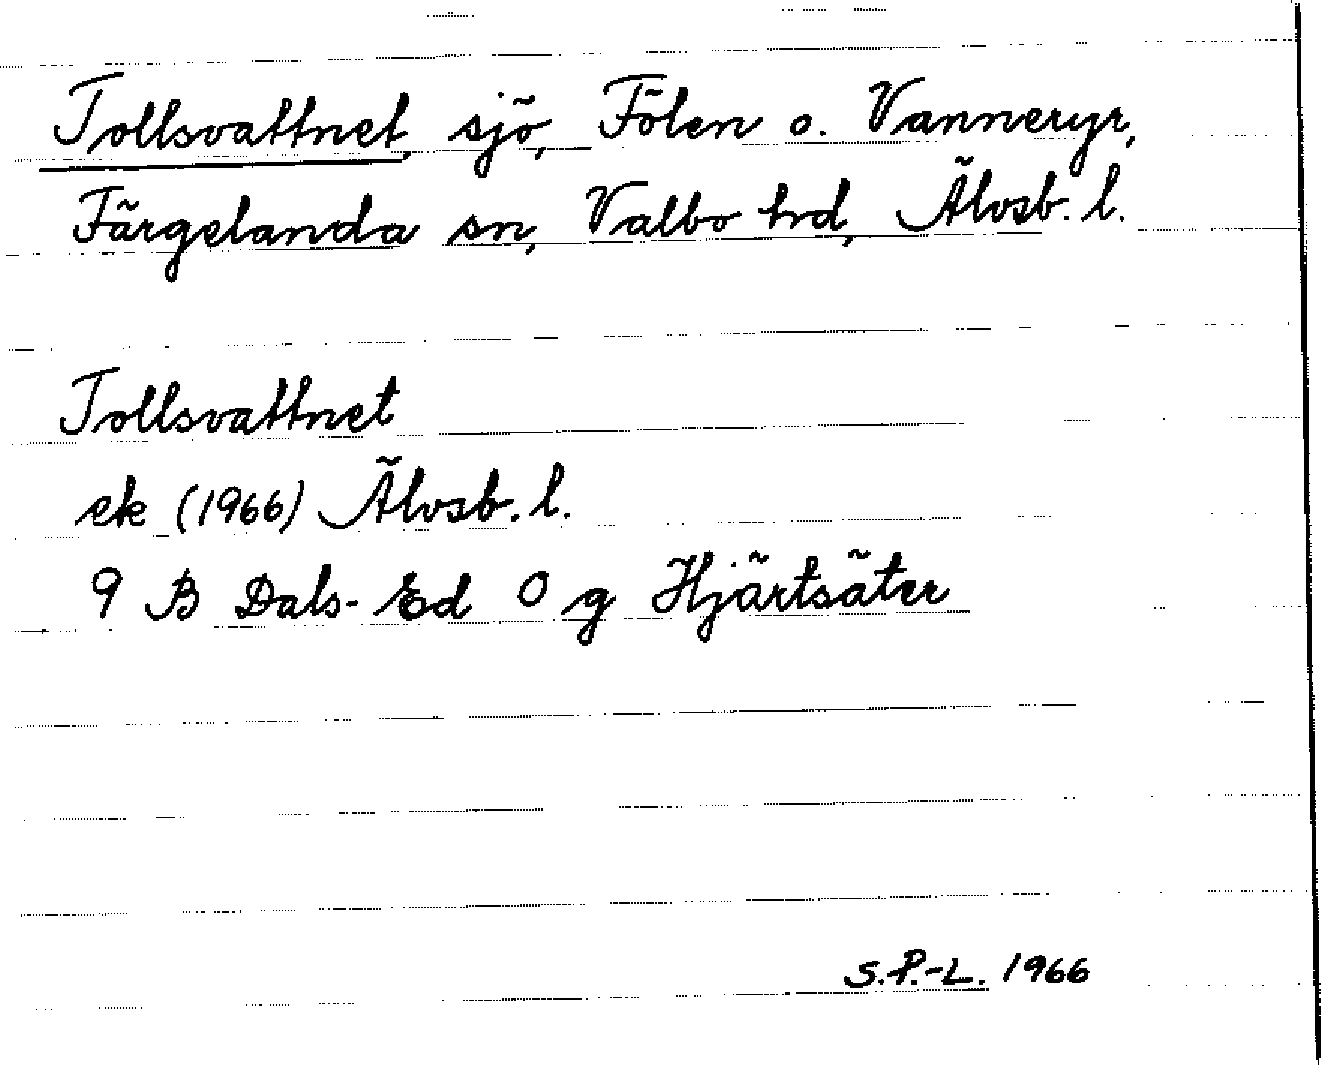 Tollsvattnet, sjö, Fölen o. Vanneryr,
Färgelanda sn, Valbo hd, Älvsb. l.
Tollsvattnet
ek (1966) Älvsb. l.
9 B Dals-Ed 0 g Hjärtsäter
S.P.-L. 1966